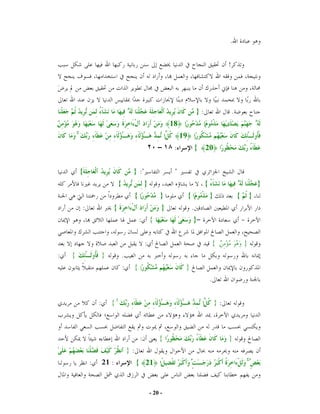 وهو عبادة الله.
وتذكر! أن تحقيق النجاح في الدنيا يخضع إلى سنن ربانية ركبها الله فيها على شكل سبب
ونتيجة، فمن وفقه الله لاكتشافها، والعمل بها، وأراد له أن ينجح في استخدامها، فسوف ينجح لا
محالة. ومن هنا فإني أحذرك أن ما ينبهر به البعض في مجال تطوير الذات من تحقيق بعض من لم يرض
بالله رباً ولا بمحمد نبياً ولا بالإسلام ديناً لإنجازات كبيرة جداً بمقاييس الدنيا لا يزن عند الله تعالى
جناح بعوضة. قال الله تعالى: { مَّن كَانَ يُرِيدُ الْعَاجِلَةَ عَجَّلْنَا لَهُ فِيهَا مَا نَشَاءُ لِمَن نُّرِيدُ ثُمَّ جَعَلْنَا
لَهُ جَهَنَّمَ يَصْلَاهَا مَذْمُومًا مَّدْحُورًا {18} وَمَنْ أَرَادَ الْآخِرَةَ وَسَعَىٰ لَهَا سَعْيَهَا وَهُوَ مُؤْمِنٌ
فَأُولَٰئِكَ كَانَ سَعْيُهُم مَّشْكُورًا {19} كُلًّا نُّمِدُّ هَٰؤُلَاءِ وَهَٰؤُلَاءِ مِنْ عَطَاءِ رَبِّكَ ۚ وَمَا كَانَ
عَطَاءُ رَبِّكَ مَحْظُورًا {20} } الإسراء: ١٨ – ٢٠
قال الشيخ الجزائري في تفسير " أيسر التفاسير": { مَّن كَانَ يُرِيدُ الْعَاجِلَةَ} أي الدنيا
{عَجَّلْنَا لَهُ فِيهَا مَا نَشَاءُ } ، لا ما يشاؤه العبد، وقوله { لِمَن نُّرِيدُ } لا من يريد غيرنا فالأمر كله
لنا، { ثُمَّ } بعد ذلك { مَذْمُومًا } أي ملوماً { مَّدْحُورًا } أي مطروداً من رحمتنا التي هي الجنة
دار الأبرار أي المطيعين الصادقين. وقوله تعالى { وَمَنْ أَرَادَ الْآخِرَةَ } يخبر الله تعالى: إن من أراد
الآخرة – أي سعادة الآخرة – { وَسَعَىٰ لَهَا سَعْيَهَا } أي: عمل لها عملها اللائق بها، وهو الإيمان
الصحيح، والعمل الصالح الموافق لما شرع الله في كتابه وعلى لسان رسوله، واجتنب الشرك والمعاصي
وقوله { وَهُوَ مُؤْمِنٌ } قيد في صحة العمل الصالح أي: لا يقبل من العبد صلاة ولا جهاد إلا بعد
إيمانه بالله ورسوله وبكل ما جاء به رسوله وأخبر به من الغيب. وقوله { فَأُولَٰئِكَ } أي:
المذكورون بالإيمان والعمل الصالح { كَانَ سَعْيُهُم مَّشْكُورًا } أي: كان عملهم متقبلاً يثابون عليه
بالجنة ورضوان الله تعالى.
وقوله تعالى: { كُلًّا نُّمِدُّ هَٰؤُلَاءِ وَهَٰؤُلَاءِ مِنْ عَطَاءِ رَبِّكَ } أي: أن كلا من مريدي
الدنيا ومريدي الآخرة، يمد الله هؤلاء وهؤلاء من عطائه أي فضله الواسع، فالكل يأكل ويشرب
ويكتسي بحسب ما قدر له من الضيق والوسع، ثم يموت وثم يقع التفاضل بحسب السعي الفاسد أو
الصالح وقوله { وَمَا كَانَ عَطَاءُ رَبِّكَ مَحْظُورًا } يعني أن: من أراد الله إعطاءه شيئاً لا يمكن لأحد
أن يصرفه منه ويحرمه منه بحال من الأحوال ويقول الله تعالى: { انظُرْ كَيْفَ فَضَّلْنَا بَعْضَهُمْ عَلَىٰ
بَعْضٍ ۚ وَلَلْآخِرَةُ أَكْبَرُ دَرَجَاتٍ وَأَكْبَرُ تَفْضِيلًا {21} } الإسراء : 21 أي: انظر يا رسولنا
ومن يفهم خطابنا كيف فضلنا بعض الناس على بعض في الرزق الذي شمل الصحة والعافية والمال
- 20 -